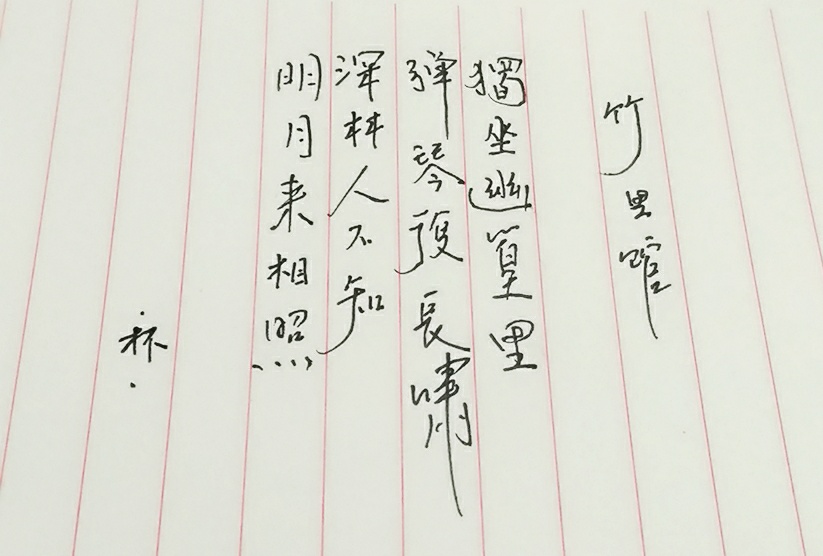 竹里馆
獨坐幽篁里
弹琴復長嘯
深林人不知
明月来相照
·杯·